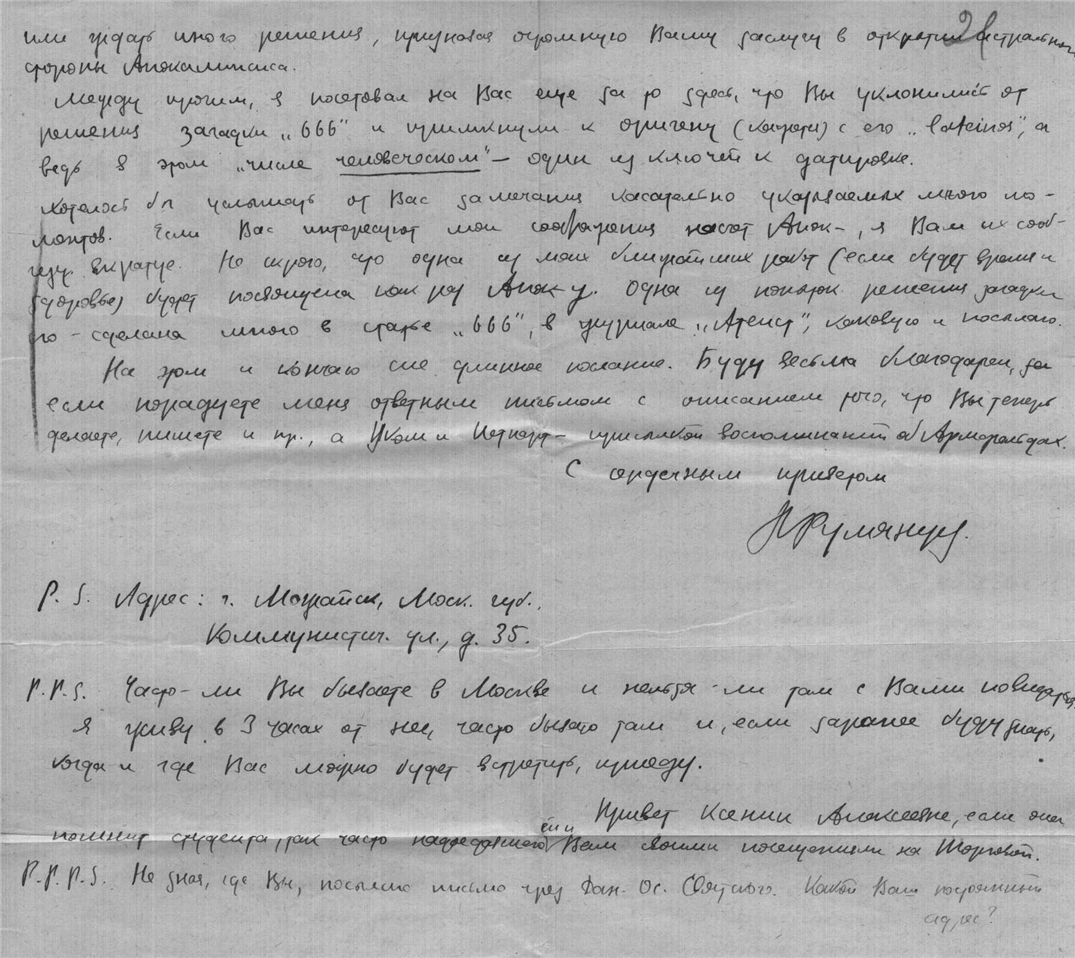 или ждать иного решения, признавая огромную Вашу заслугу в открытии астральной
стороны Апокалипсиса.
Между прочим, я посетовал на Вас еще за то здесь, что Вы уклонились от
решения загадки „666" и примкнули к Оригену (кажется) с его „lateinos", а
ведь в этом „числе человеческом" – один из ключей к датировке.
Хотелось бы услышать от Вас замечания касательно указываемых мною мо-
ментов. Если Вас интересуют мои соображения насчет Апок–, я Вам их сооб-
щу вкратце. Не скрою, что одна из моих ближайших работ (если будет время и
здоровье) будет посвящена как раз Апок-у. Одна из попыток решения загадки
его – сделана мною в статье „666", в журнале „Атеист", каковую и посылаю.
На этом и кончаю сие длинное послание. Буду весьма благодарен,
если порадуете меня ответным письмом с описанием того, что Вы теперь
делаете, пишете и пр., а присылкой воспоминаний об
С сердечным приветом
НРумянцев.
P.S. Адрес: г. Можайск, Моск. губ.,
Коммунистич. ул., д. 35.
P.P.S. Часто-ли Вы бываете в Москве и нельзя-ли там с Вами повидаться.
Я живу в 3 часах от нее, часто бываю там и, если заранее буду знать,
когда и где Вас можно будет встретить, приеду.
Привет Ксении Алексеевне, если она
помнит студента, так часто надоедавшего ей и Вам своими посещениями на Торговой.
P.P.P.S. Не зная, где Вы, посылаю письмо чрез Дан. Ос. Святского. Какой Ваш постоянный
адрес?